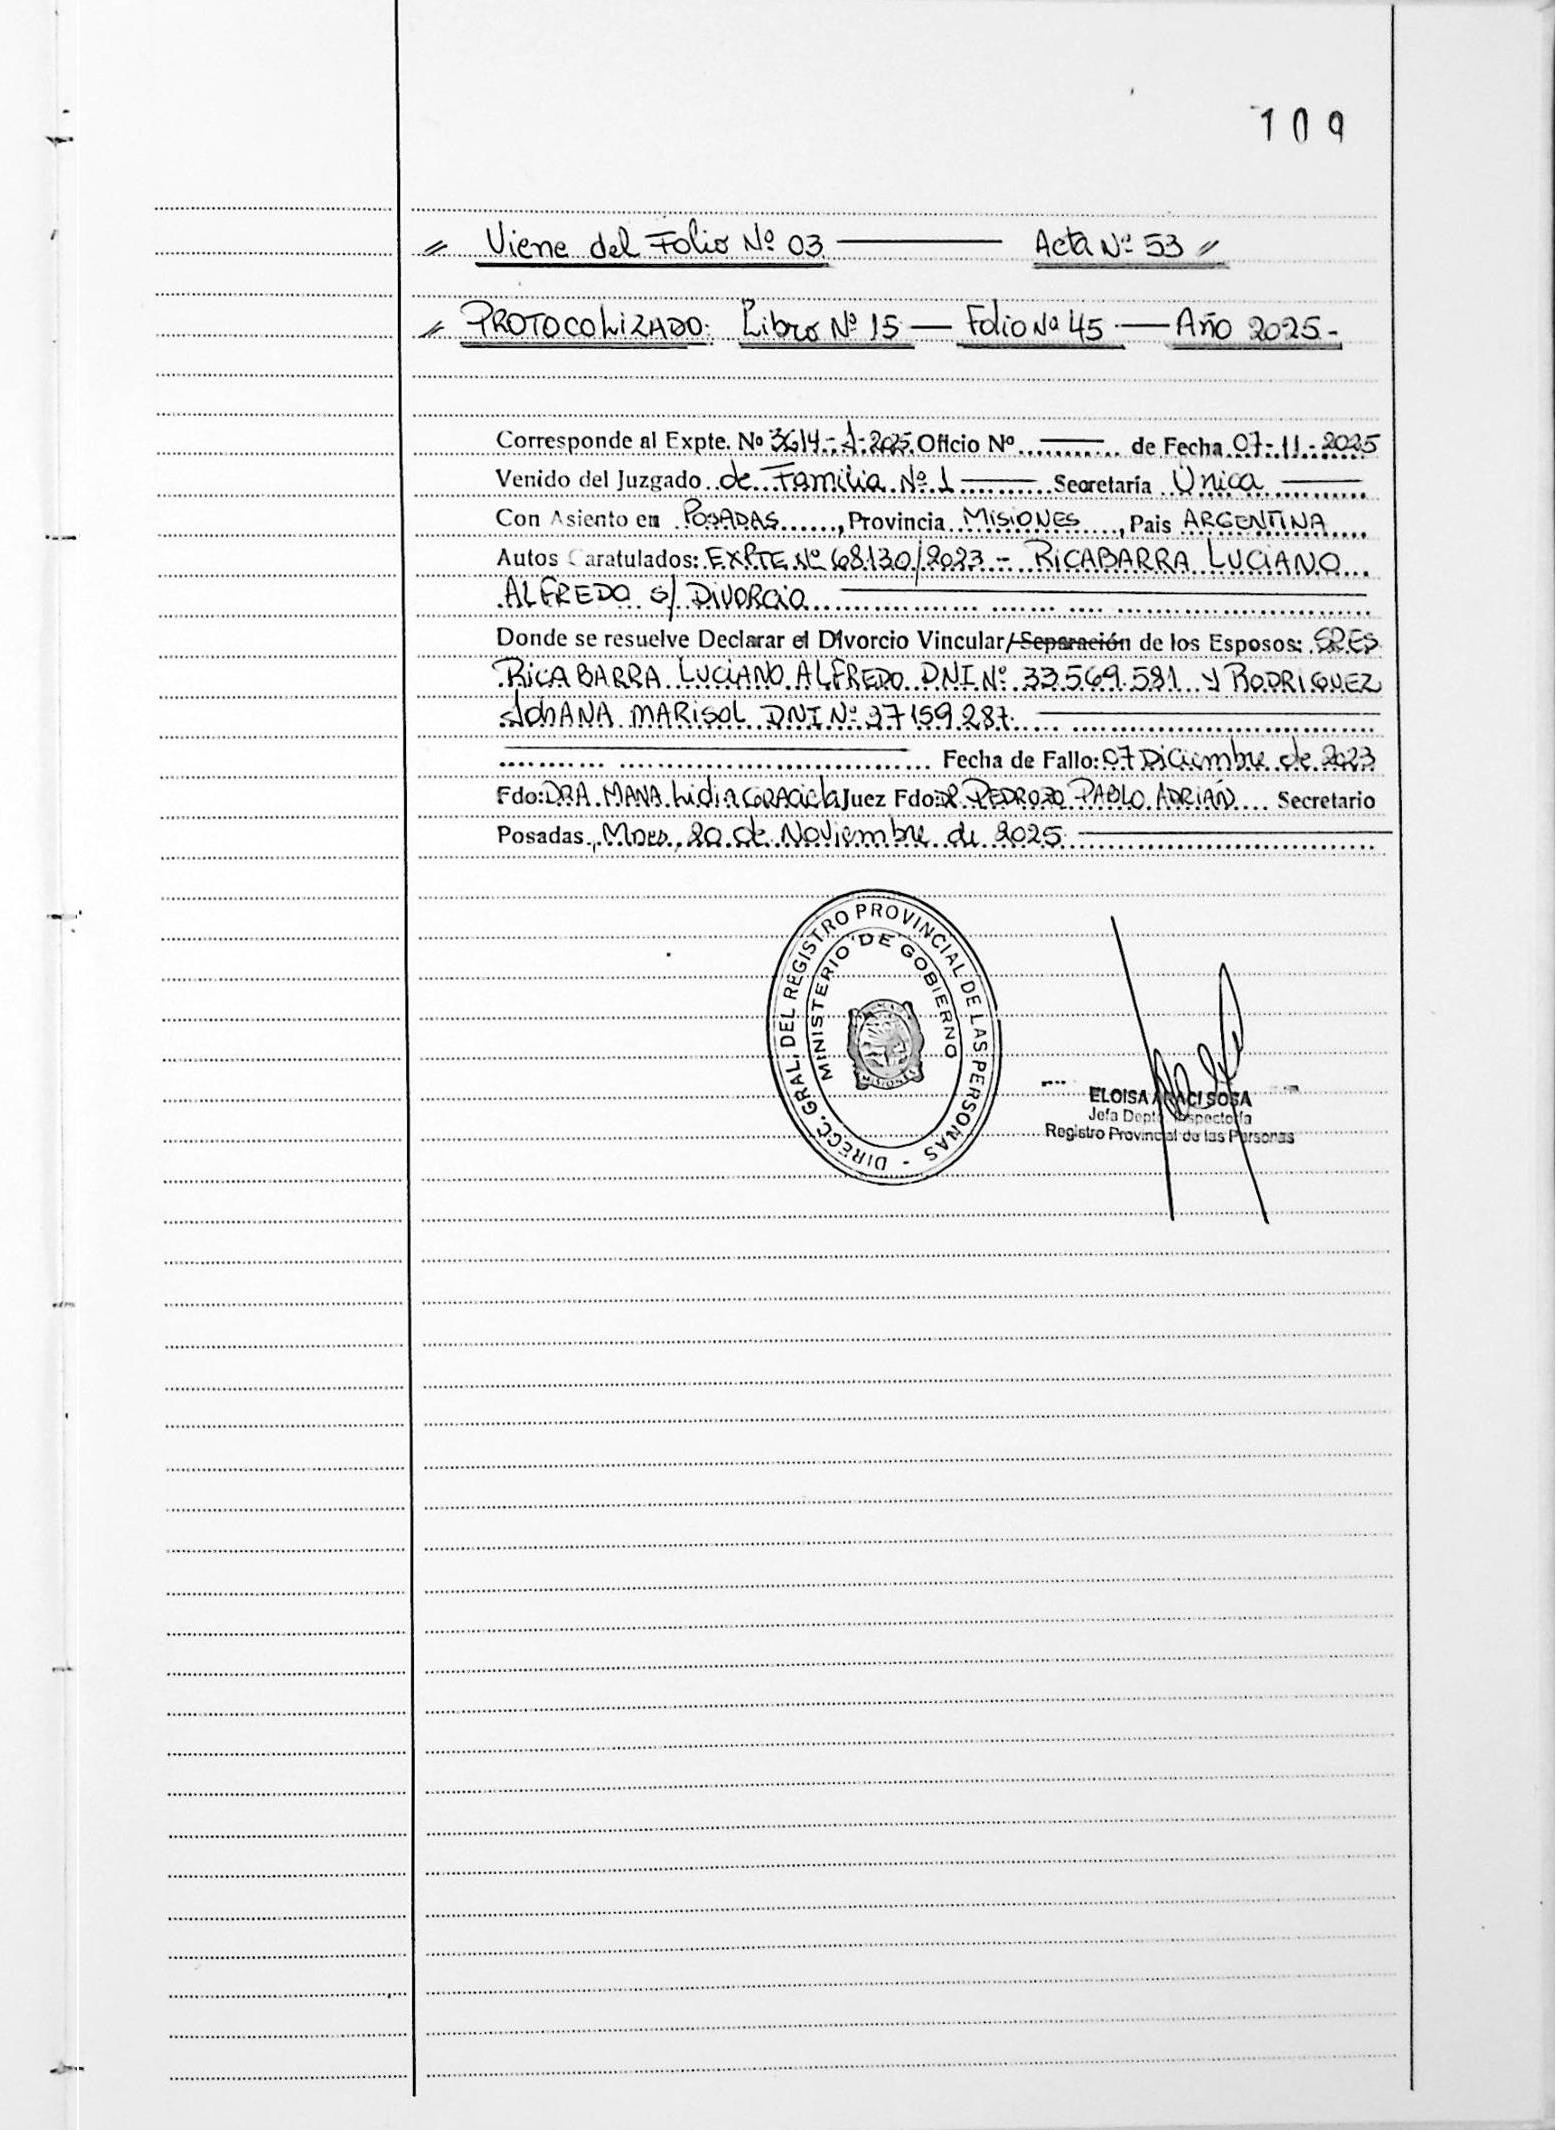 109
// Viene del Folio Nº 03 ——— Acta Nº 53 //
// PROTOCOLIZADO: Libro Nº 15 — Folio Nº 45 — Año 2025-
Corresponde al Expte. Nº 3614-J-2025 Oficio Nº ——— de Fecha 07-11-2025
Venido del Juzgado de Familia Nº 1 ——— Secretaría Única ———
Con Asiento en POSADAS, Provincia MISIONES, Pais ARGENTINA
Autos Caratulados: EXPTE Nº 68130/2023 - RICABARRA LUCIANO
ALFREDO s/ DIVORCIO
Donde se resuelve Declarar el Divorcio Vincular/Separación de los Esposos: SRES
RICABARRA LUCIANO ALFREDO DNI Nº 33.569.581 y RODRIGUEZ
JOHANA MARISOL DNI Nº 37159.287
Fecha de Fallo: 07 Diciembre de 2023
Fdo: DRA. Lidia GRACIELA Juez Fdo: DR PEDROZO PABLO ADRIÁN Secretario
Posadas, Mnes, 20 de Noviembre de 2025
DIRECC. GRAL. DEL REGISTRO PROVINCIAL DE LAS PERSONAS -
MINISTERIO DE GOBIERNO
MISIONES
ELOISA ARACI SOSA
Jefa Depto Inspectoría
Registro Provincial de las Personas